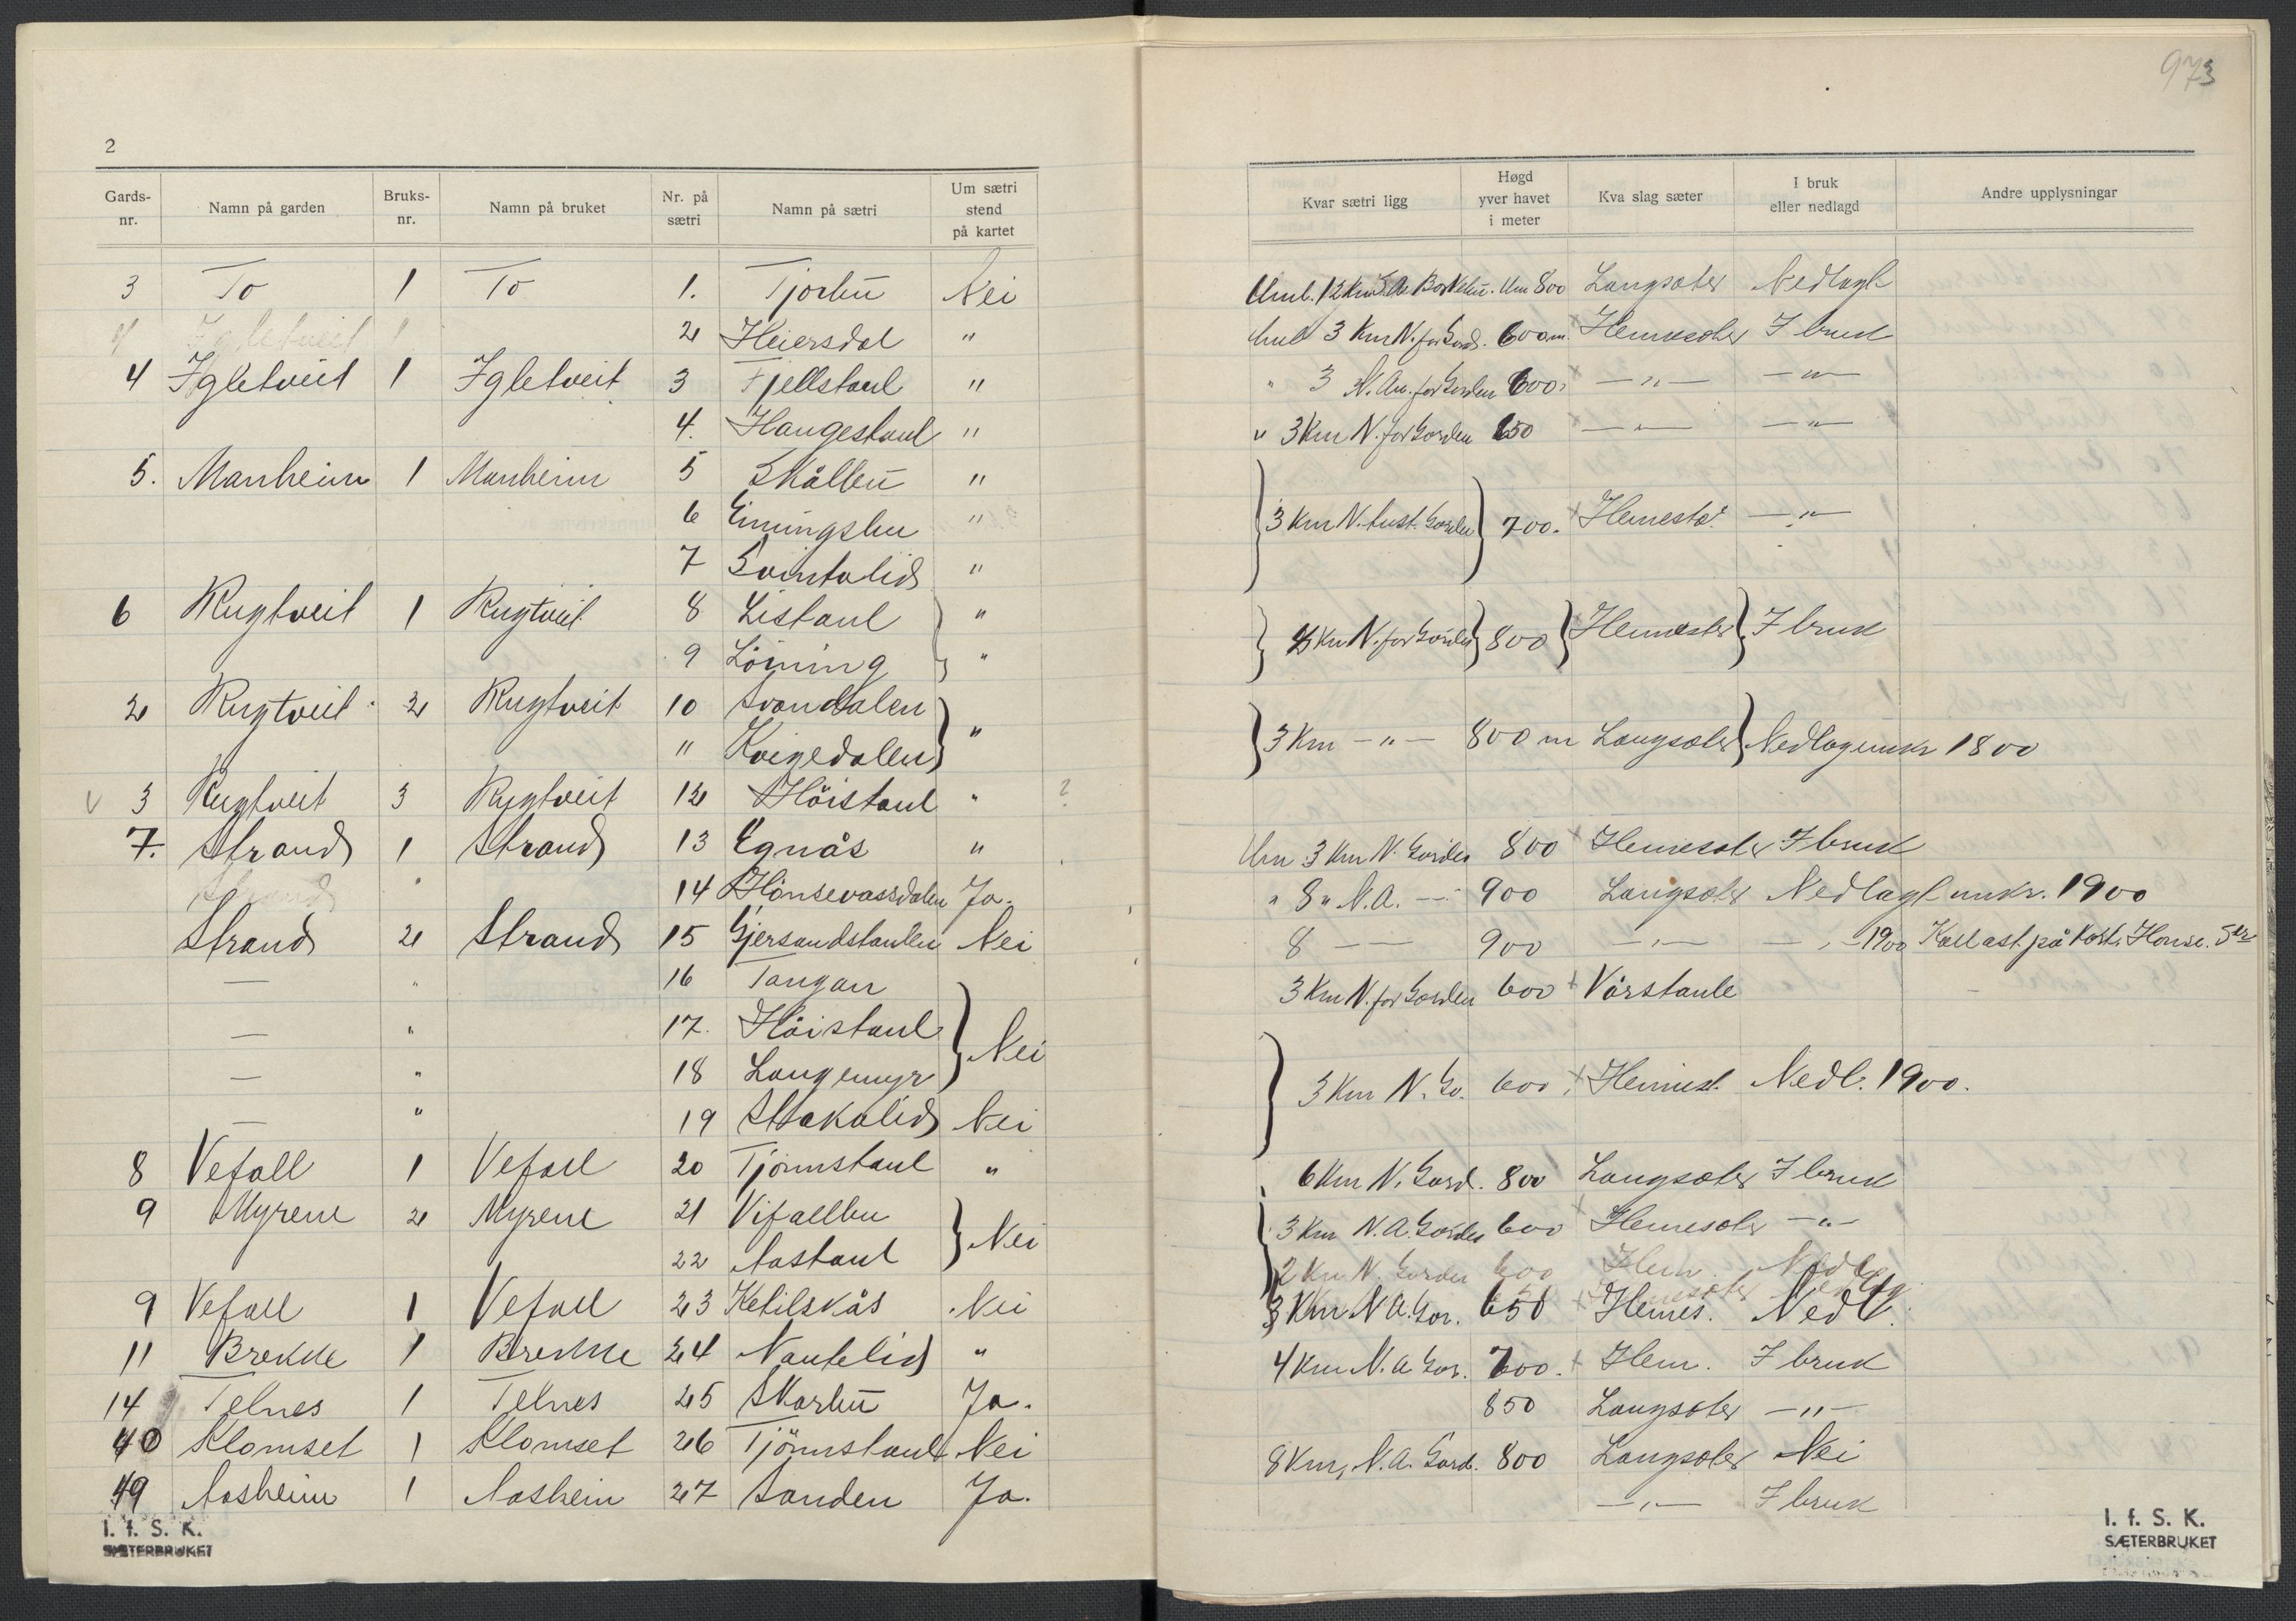 973
2
Gards-nr. Namn på garden Bruks-nr. Namn på bruket Nr. på sætri Namn på sætri Um sætri stend på kartet
3 To 1 To 1. Tjorbū Nei
2 Heiersdal "
4 Igletveit 1 Igletveit 3 Fjellstaul "
4. Haugestaul "
5. Manheim 1 Manheim 5 Skålbū "
6 Einingsbu "
7 Svintalid "
6 Rugtveit 1 Rugtveit 8 Listaul "
9 Löining "
2 Rugtveit 2 Rugtveit 10 Svandalen
" Kvigedalen "
v 3 Rugtveit 3 Rugtveit 12 Höistaul " ?
7. Strand 1 Strand 13 Egnås "
Strand " 14 Hönsevassdalen Ja.
Strand 2 Strand 15 Gjersandstaulen Nei
— " 16 Tangan
— " 17. Höistaul Nei
— " 18 Langemyr
— " 19 Stakalid Nei
8 Vefall 1 Vefall 20 Tjönnstaul "
9 Myrene 2 Myrene 21 Vifallbu
22 Aastaul Nei
9 Vefall 1 Vefall 23 Ketilskås Nei
11 Brekke 1 Brekke 24 Nautelid "
14 Telnes 1 Telnes 25 Skarbū Ja.
40 Klomset 1 Klomset 26 Tjönnstaul Nei
49 Aasheim 1 Aasheim 27 Sanden Ja.
I. f. S. K.
SÆTERBRUKET
Kvar sætri ligg Høgd yver havet i meter Kva slag sæter I bruk eller nedlagd Andre upplysningar
Uml. 12 Km Um 800 Langsæter Nedlagt
Uml 3 Km N. for Gard. 600 m. Hemesæter I bruk
" 3 N. Au. for Garden 600. — " — — " —
" 3 Km N. for Garden 650 — " — — " —
3 Km N. Garden 700. Hemestø. — " —
Km N. for Garden 800 Hemesæter I bruk
3 Km — " — 800 m Langsæter Nedlag umkr 1800
Um 3 Km N. Garden 800 Hemesæter I bruk
" 8 " N. A. — 900 Langsæter Nedlagt umkr. 1900
8 — — 900 — " — — " — 1900 Kallast på Kart. Honse. Str
3 Km N. for Garden 600 Vårstaule
3 Km N. Ga. 600. Hemest. Nedl. 1900.
6 Km N. Gard. 800 Langsæter I bruk
3 Km N. A. Garden 600 Hemesæter — " —
2 Km N. Garden 600 Hem. Nedl.
3 Km N A. Gar. 650 Hemes. Nedl.
4 Km N. A Gar. 700. Hem. I bruk
850 Langsæter — " —
8 Km, N. A. Gard. 800 Langsæter Nei
— " — I bruk
I. f. S. K.
SÆTERBRUKET